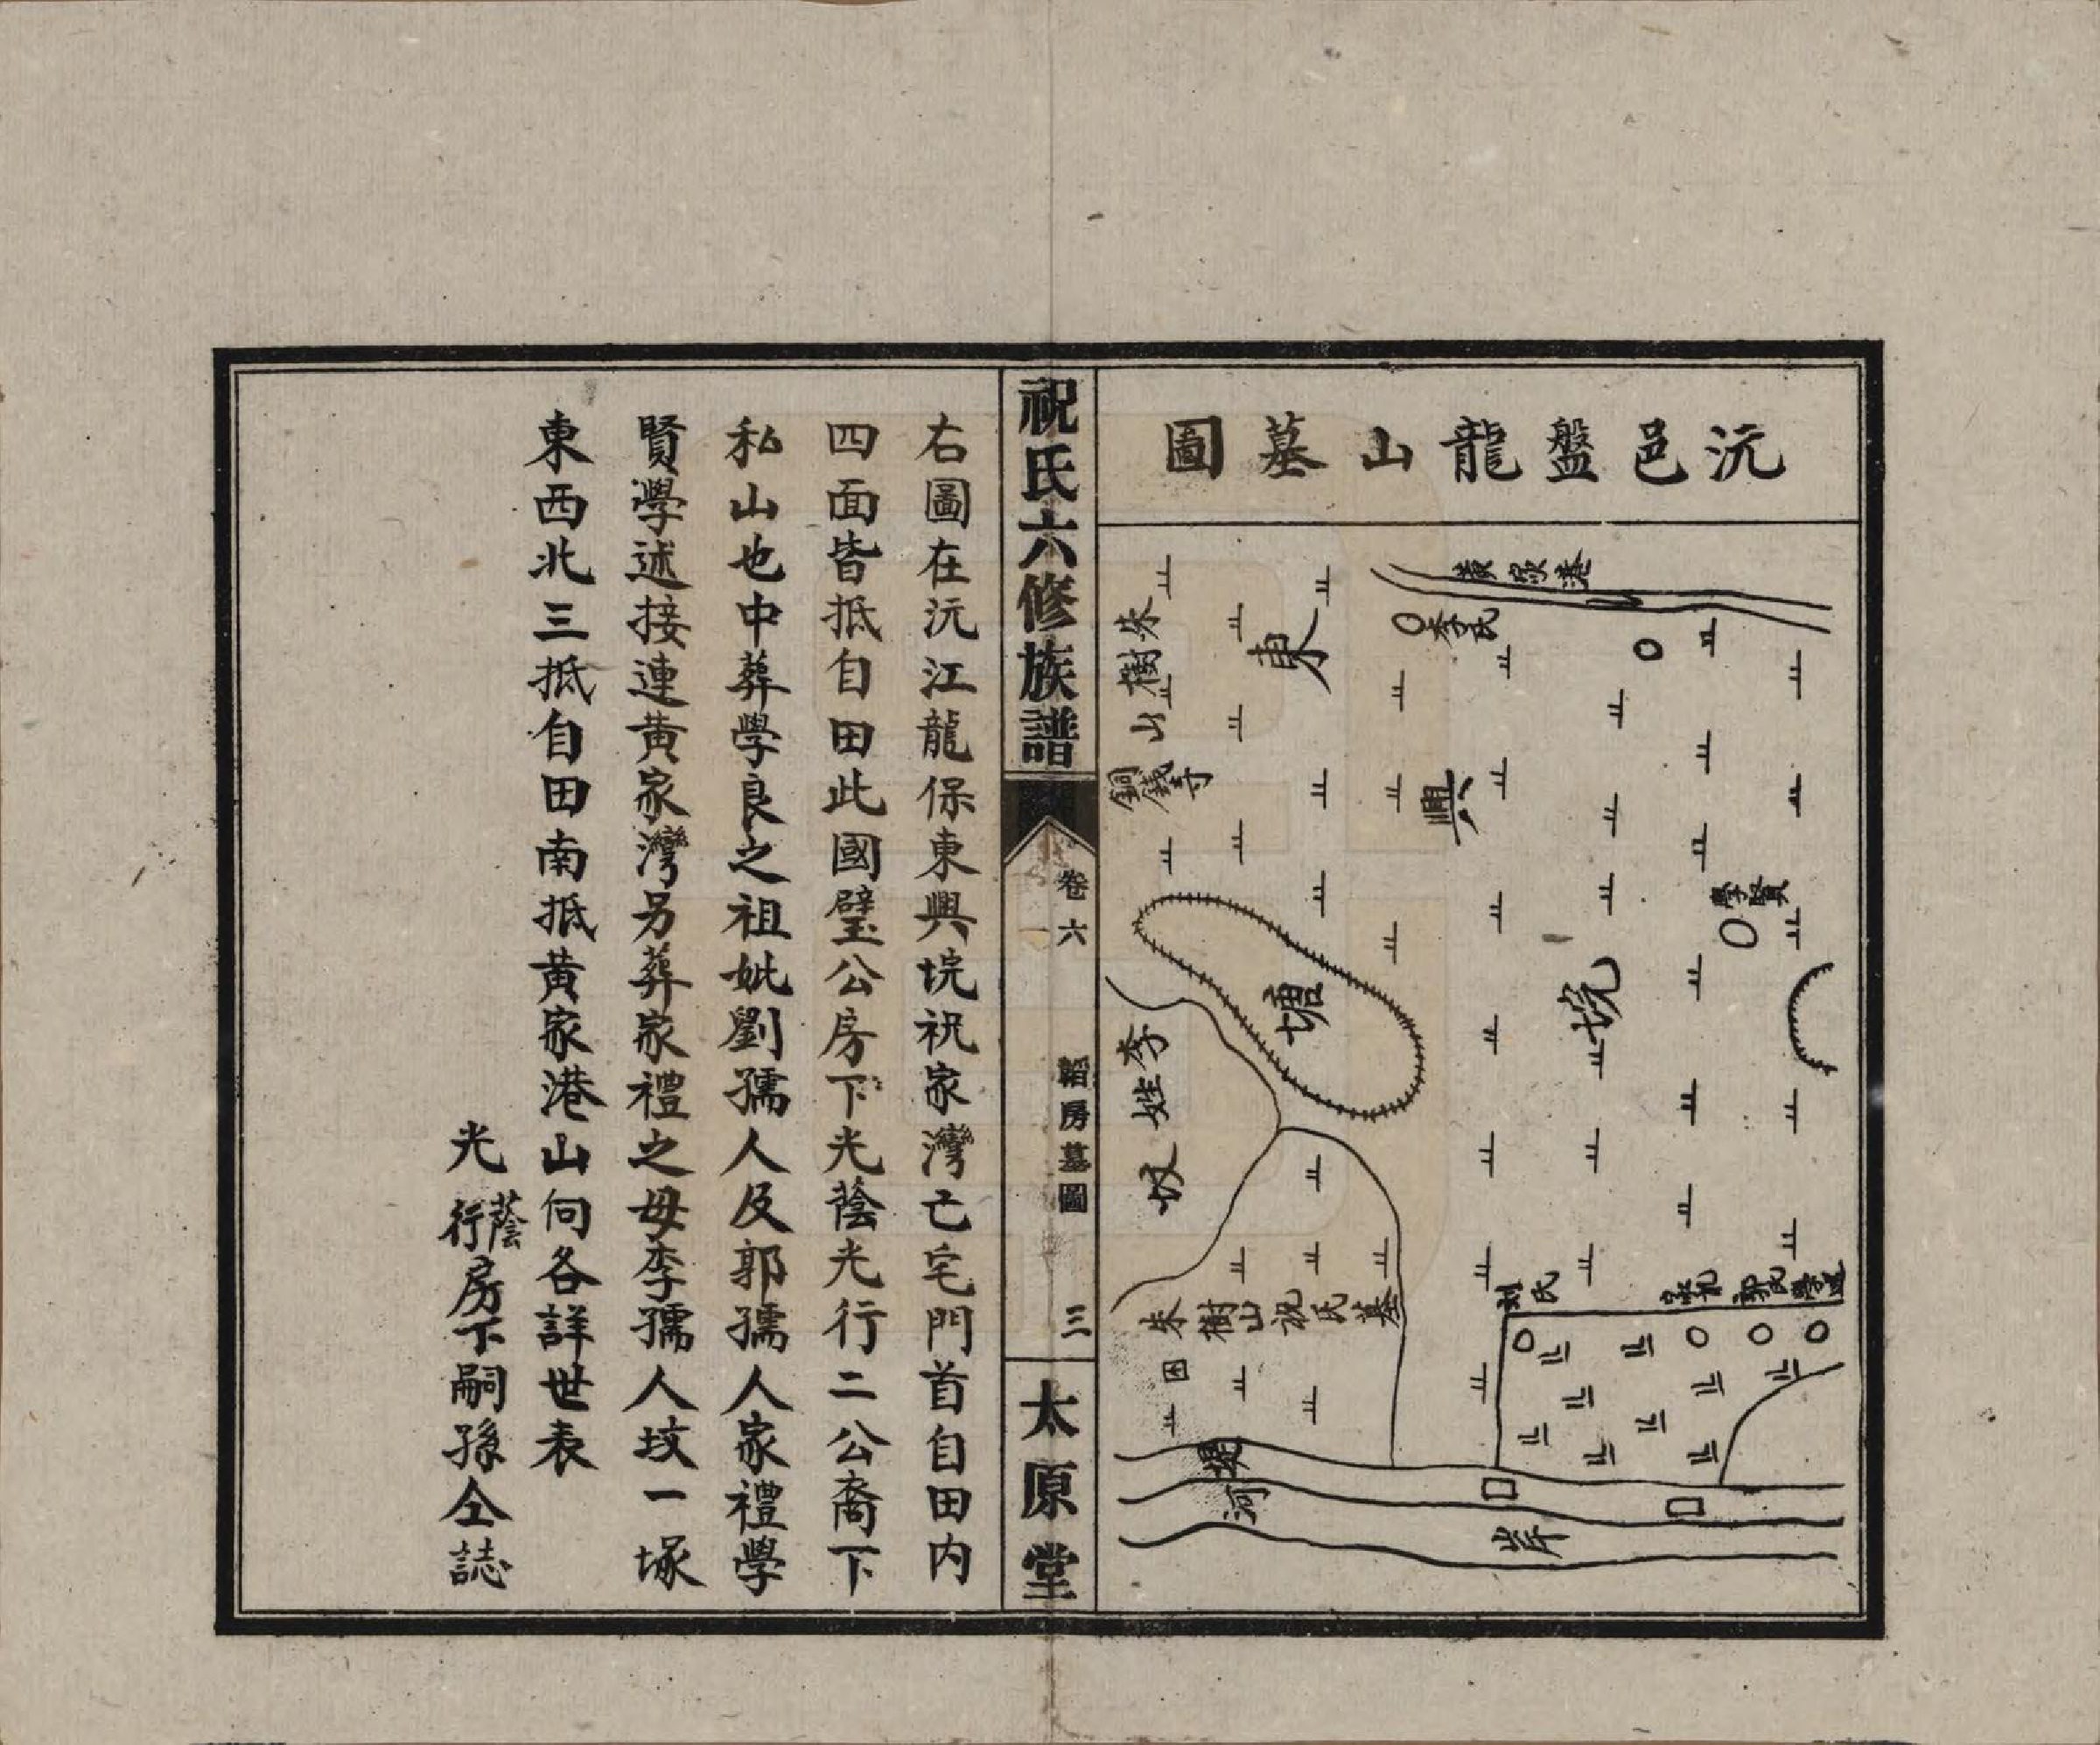 沅邑盤龍山墓圖
黃家港
李氏
東
興
垸
朱樹山
銅錢寺
學賢
塘
李姓坟
刘氏
家礼
郭氏
朱樹山祝氏墓
堤
河
岸
祝氏六修族譜
卷六
韜房墓圖
三
太原堂
右圖在沅江龍保東興垸祝家灣亡宅門首自田内
四面皆抵自田此國璧公房下光蔭光行二公裔下
私山也中葬學良之祖妣劉孺人及郭孺人家禮學
賢學述接連黃家灣另葬家禮之母李孺人坟一塚
東西北三抵自田南抵黃家港山向各詳世表
光蔭行房下嗣孫仝誌